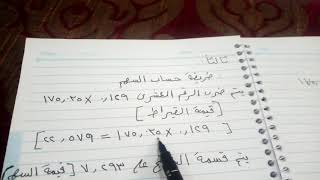 ثالثا
طريقة حساب السهم
يتم ضرب الرقم العشرى ١٢٩, × ١٧٥,٢٥
[قيمة القيراط]
[١٢٩, × ١٧٥,٢٥ = ٢٢,٥٧٩]
يتم قسمة على ٧,٢٩٣ [قيمة السهم]